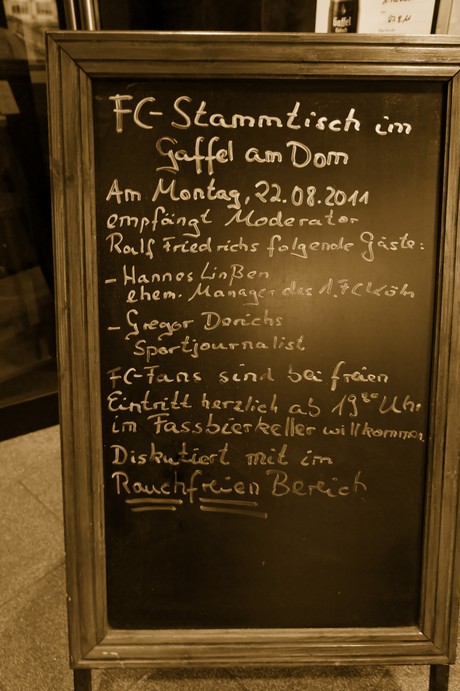 Gaffel
FC-Stammtisch im
Gaffel am Dom
Am Montag, 22.08.2011
empfängt Moderator
Ralf Friedrichs folgende Gäste:
- Hannes Linßen
ehem. Manager des 1. FC Köln
- Gregor Derichs
Sportjournalist
FC-Fans sind bei freien
Eintritt herzlich ab 19⁰⁰ Uhr
im Fassbierkeller willkommen
Diskutiert mit im
Rauchfreien Bereich